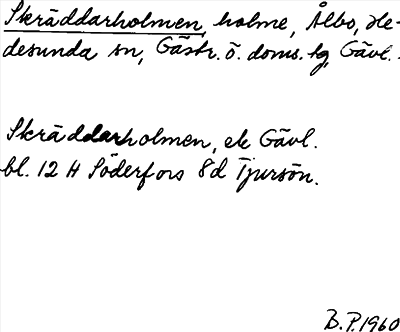 Skräddarholmen, holme, Ålbo, He-
desunda sn, Gästr. ö. doms. tg, Gävl.
Skräddarholmen, ek Gävl.
bl. 12 H Söderfors 8d Tjursön.
B.P. 1960